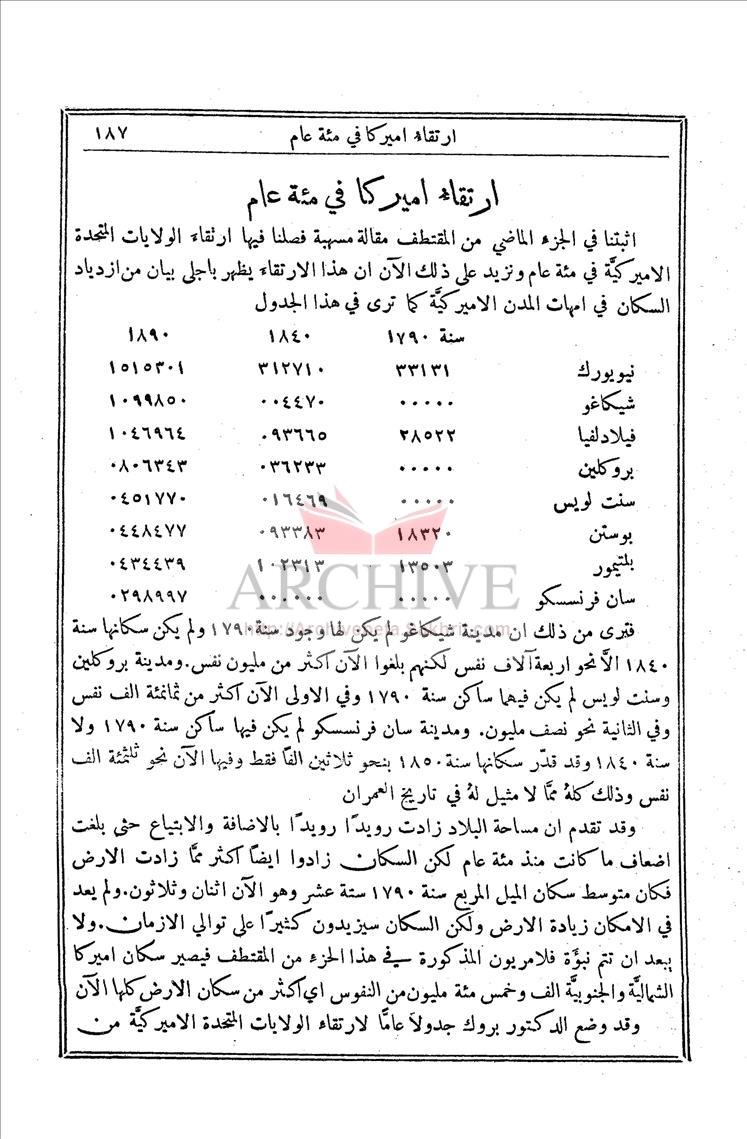 ارتقاء اميركا في مئة عام ١٨٧
ارتقاء اميركا في مئة عام
اثبتنا في الجزء الماضي من المقتطف مقالة مسهبة فصلنا فيها ارتقاء الولايات المتحدة
الاميركيَّة في مئة عام ونزيد على ذلك الآن ان هذا الارتقاء يظهر باجلى بيان من ازدياد
السكان في امهات المدن الاميركيَّة كما ترى في هذا الجدول
سنة ١٧٩٠ ١٨٤٠ ١٨٩٠
نيويورك ٣٣١٣١ ٣١٢٧١٠ ١٥١٥٣٠١
شيكاغو ٠٠٠٠٠ ٠٠٤٤٧٠ ١٠٩٩٨٥٠
فيلادلفيا ٢٨٥٢٢ ٠٩٣٦٦٥ ١٠٤٦٩٦٤
بروكلين ٠٠٠٠٠ ٠٣٦٢٣٣ ٠٨٠٦٣٤٣
سنت لويس ٠٠٠٠٠ ٠١٦٤٦٩ ٠٤٥١٧٧٠
بوستن ١٨٣٢٠ ٠٩٣٣٨٣ ٠٤٤٨٤٧٧
بلتيمور ١٣٥٠٣ ١٠٢٣١٣ ٠٤٣٤٤٣٩
سان فرنسسكو ٠٠٠٠٠ ٠٠٠٠٠٠ ٠٢٩٨٩٩٧
ARCHIVE
فترى من ذلك ان مدينة شيكاغو لم يكن لها وجود سنة ١٧٩٠ ولم يكن سكانها سنة
١٨٤٠ الَّا نحو اربعة آلاف نفس لكنهم بلغوا الآن اكثر من مليون نفس. ومدينة بروكلين
وسنت لويس لم يكن فيهما ساكن سنة ١٧٩٠ وفي الاولى الآن اكثر من ثمانمئة الف نفس
وفي الثانية نحو نصف مليون. ومدينة سان فرنسسكو لم يكن فيها ساكن سنة ١٧٩٠ ولا
سنة ١٨٤٠ وقد قدّر سكانها سنة ١٨٥٠ بنحو ثلاثين الفًا فقط وفيها الآن نحو ثلثمئة الف
نفس وذلك كلهُ ممَّا لا مثيل لهُ في تاريخ العمران
وقد تقدم ان مساحة البلاد زادت رويدًا رويدًا بالاضافة والابتياع حتى بلغت
اضعاف ما كانت منذ مئة عام لكن السكان زادوا ايضًا اكثر ممَّا زادت الارض
فكان متوسط سكان الميل المربع سنة ١٧٩٠ ستة عشر وهو الآن اثنان وثلاثون. ولم يعد
في الامكان زيادة الارض ولكن السكان سيزيدون كثيرًا على توالي الازمان. ولا
يبعد ان تتم نبوَّة فلامريون المذكورة في هذا الجزء من المقتطف فيصير سكان اميركا
الشماليَّة والجنوبيَّة الف وخمس مئة مليون من النفوس اي اكثر من سكان الارض كلها الآن
وقد وضع الدكتور بروك جدولًا عامًّا لارتقاء الولايات المتحدة الاميركيَّة من